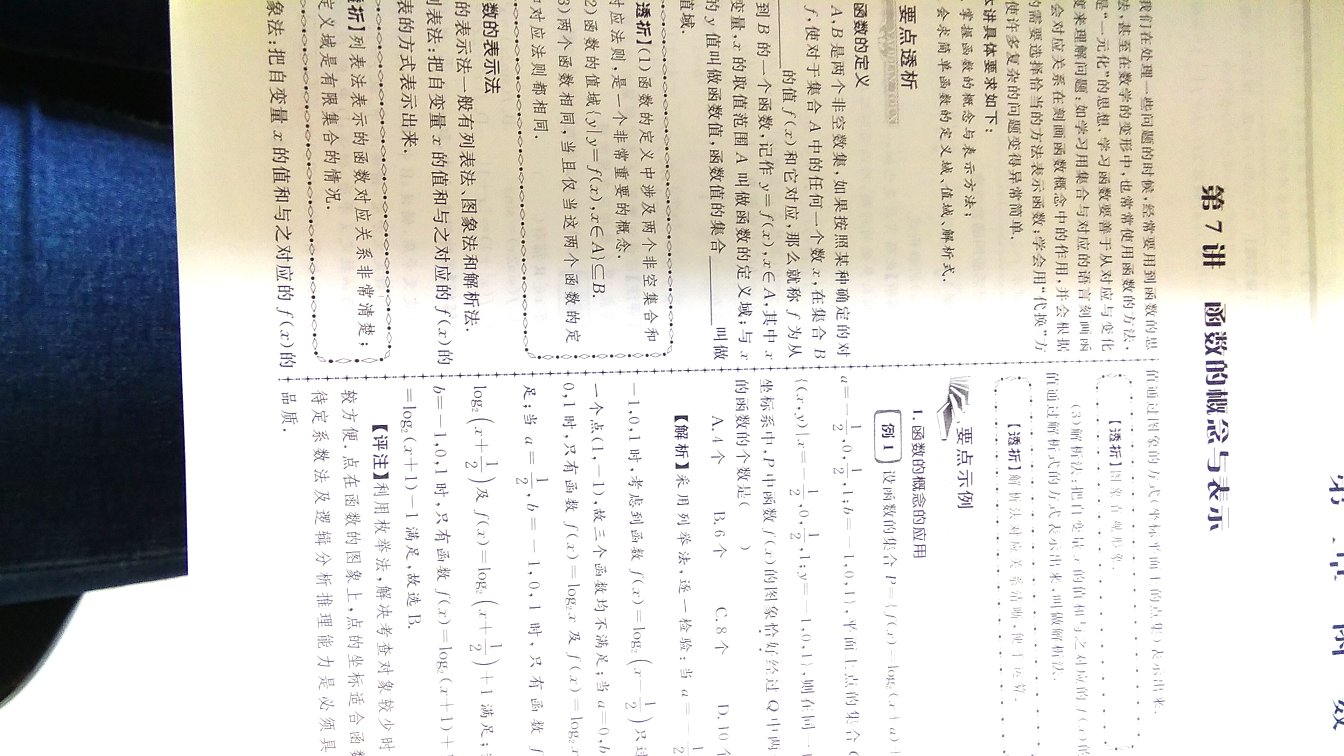 第7讲 函数的概念与表示
我们在处理一些问题的时候,经常要用到函数的思
法,甚至在数学的变形中,也常常使用函数的方法,
是“一元化”的思想.学习函数要善于从对应与变化
度来理解问题;如学习用集合与对应的语言刻画函
会对应关系在刻画函数概念中的作用,并会根据
的需要选择恰当的方法表示函数;学会用“代换”方
使许多复杂的问题变得异常简单.
本讲具体要求如下:
掌握函数的概念与表示方法;
会求简单函数的定义域、值域、解析式.
要点透析
函数的定义
A,B是两个非空数集,如果按照某种确定的对
f,使对于集合A中的任何一个数x,在集合B
的值f(x)和它对应,那么就称f为从
到B的一个函数,记作y=f(x),x∈A.其中x
变量,x的取值范围A叫做函数的定义域;与x
的y值叫做函数值,函数值的集合______叫做
值域.
透析】(1)函数的定义中涉及两个非空集合和
对应法则,是一个非常重要的概念.
2)函数的值域{y|y=f(x),x∈A}⊆B.
3)两个函数相同,当且仅当这两个函数的定
和对应法则都相同.
数的表示法
的表示法一般有列表法、图象法和解析法.
列表法:把自变量x的值和与之对应的f(x)的
表的方式表示出来.
析】列表法表示的函数对应关系非常清楚;
定义域是有限集合的情况.
象法:把自变量x的值和与之对应的f(x)的
值通过图象的方式(坐标平面上的点集)表示出来.
【透析】图象直观形象.
(3)解析法:把自变量x的值和与之对应的f(x)的
值通过解析式的方式表示出来,叫做解析法.
【透析】解析法对应关系清晰,便于运算.
要点示例
1.函数的概念的应用
例1 设函数的集合P={f(x)=log₂(x+a)+
a=-1/2,0,1/2,1;b=-1,0,1},平面上点的集合
{(x,y)|x=-1/2,0,1/2,1;y=-1,0,1},则在同一
坐标系中,P中函数f(x)的图象恰好经过Q中两
的函数的个数是( )
A.4个 B.6个 C.8个 D.10个
【解析】采用列举法,逐一检验:当a=-1/2
-1,0,1时,考虑到函数f(x)=log₂(x-1/2)只过
一个点(1,-1),故三个函数均不满足;当a=0,b
0,1时,只有函数f(x)=log₂x及f(x)=log₂x
足;当a=1/2,b=-1,0,1时,只有函数f
log₂(x+1/2)及f(x)=log₂(x+1/2)+1满足;
b=-1,0,1时,只有函数f(x)=log₂(x+1)+
=log₂(x+1)-1满足,故选B.
【评注】利用枚举法,解决考查对象较少时
较方便.点在函数的图象上,点的坐标适合函数
待定系数法及逻辑分析推理能力是必须具
品质.